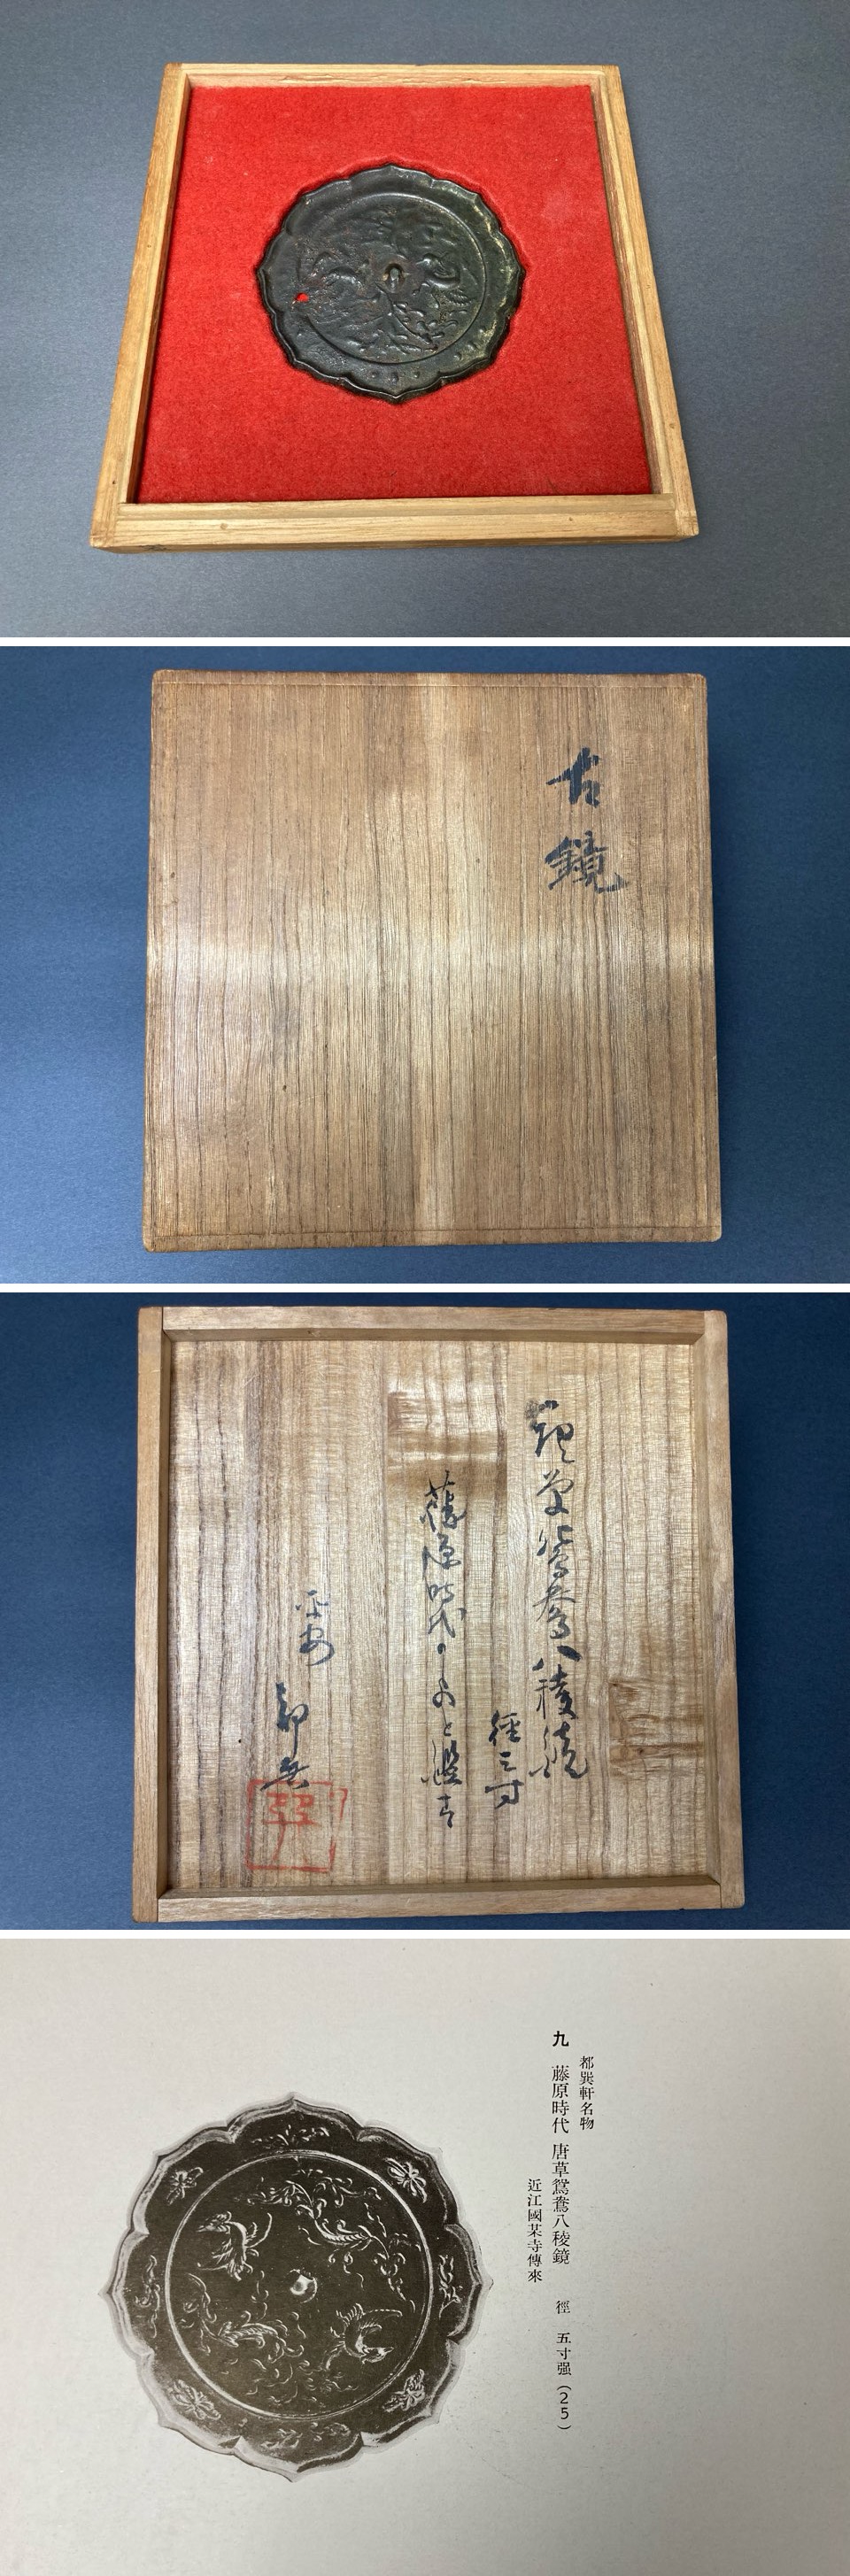 古鏡
瑞草鴛鴦八稜鏡
徑三寸
藤原時代のものと鑑す
平安
都巽軒名物
九 藤原時代 唐草鴛鴦八稜鏡 徑 五寸强 (25)
近江國某寺傳來